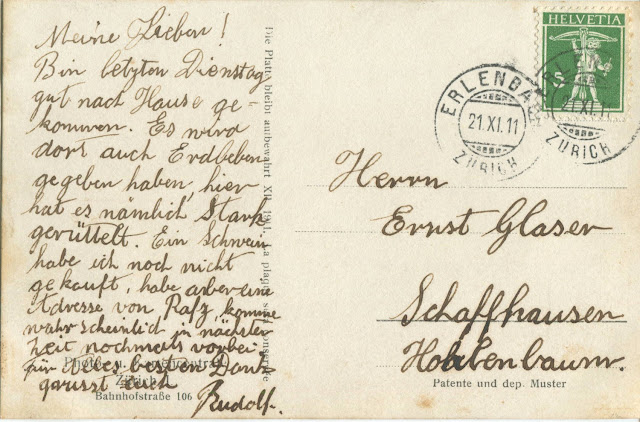 Meine Lieben!
Bin letzten Dienstag
gut nach Hause ge-
kommen. Es wird
dort auch Erdbeben
gegeben haben, hier
hat es nämlich stark
gerüttelt. Ein Schwein
habe ich noch nicht
gekauft, habe aber eine
Adresse von Rafz, komme
wahrscheinlich in nächster
Zeit nochmals vorbei
für alles besten Dank
grüsst euch
Rudolf.
Die Platte bleibt aufbewahrt XII. 1911. La plaque
Zürich
Bahnhofstraße 106
HELVETIA
5
ERLENBACH
21.XI.11
ZÜRICH
ERLENBACH
21.XI.11
ZÜRICH
Herrn
Ernst Glaser
Schaffhausen
Hohlenbaum.
Patente und dep. Muster